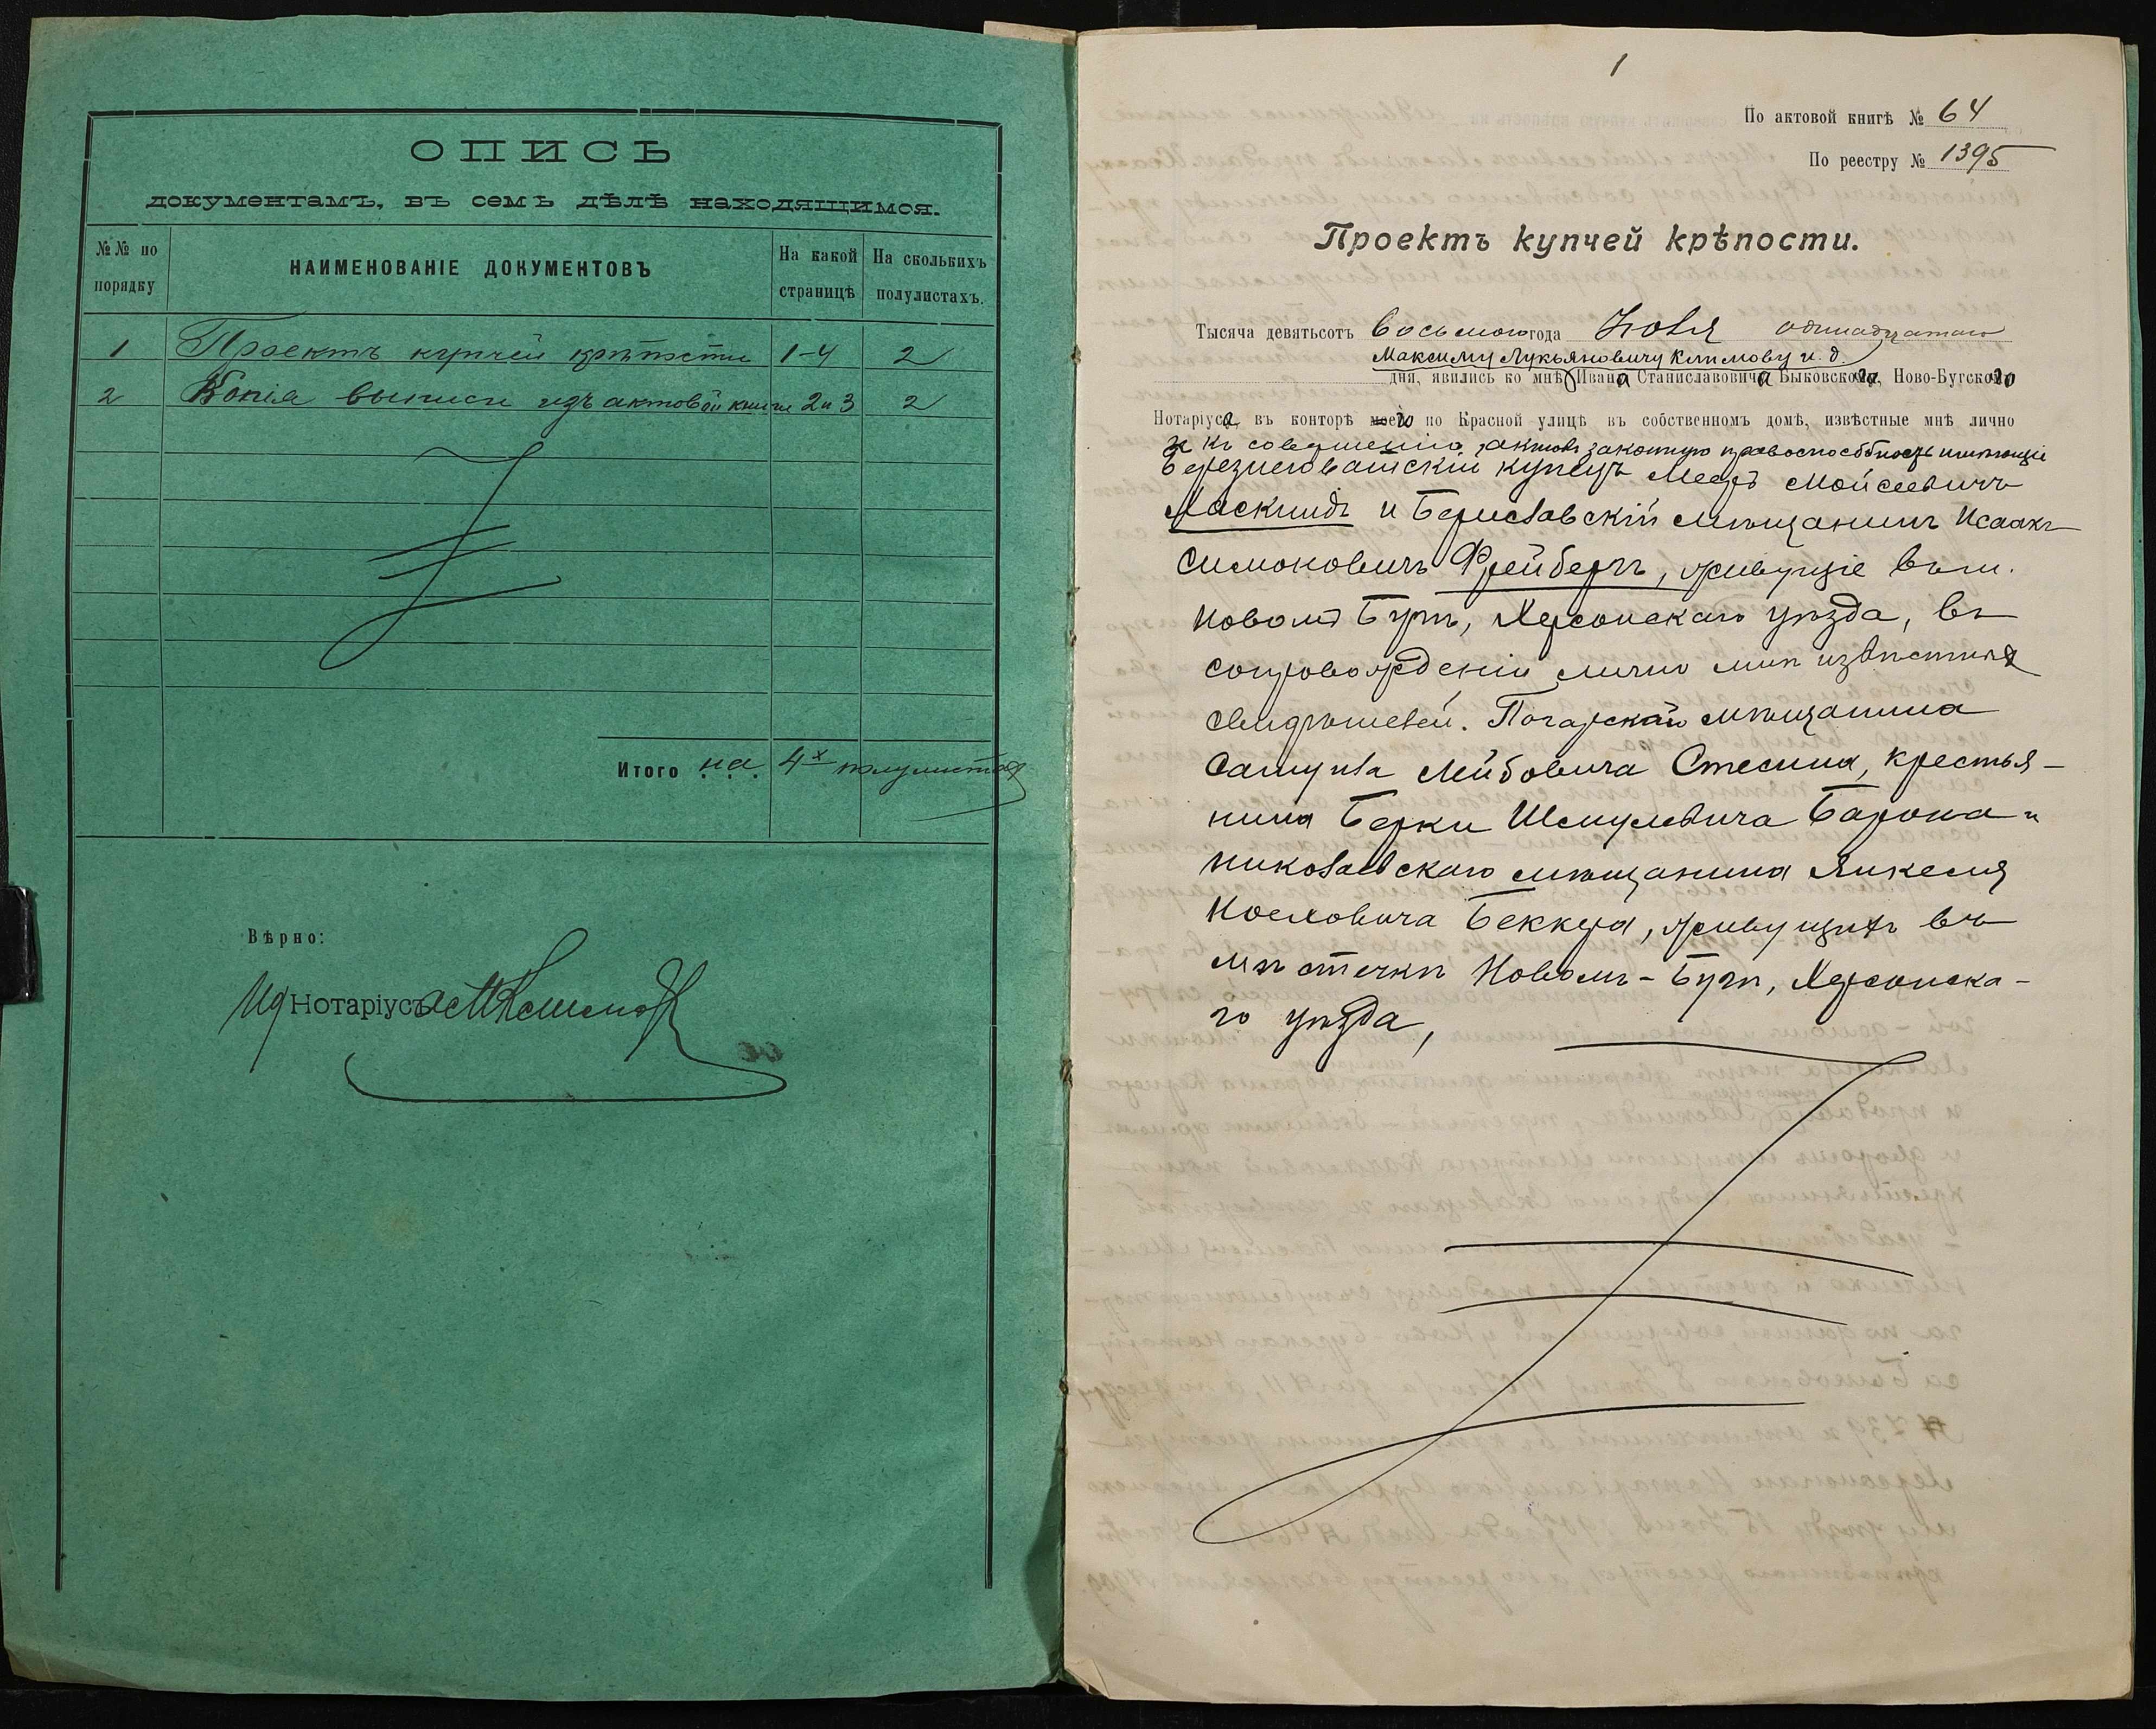 ОПИСЬ
документамъ, въ семъ дѣлѣ находящимся.
№№ по порядку
НАИМЕНОВАНІЕ ДОКУМЕНТОВЪ
На какой страницѣ
На сколькихъ полулистахъ.
1 Проектъ купчей крѣпости 1-4 2
2 Копія выписи изъ актовой книги 2 и 3 2
Итого на 4х полулистах
Вѣрно:
Ид Нотаріуса М Климов
1
По актовой книгѣ № 64
По реестру № 1395
Проектъ купчей крѣпости.
Тысяча девятьсотъ восьмого года Іюля одинадцатаго
Максиму Лукьяновичу Климову и. д.
дня, явились ко мнѣ Ивана Станиславовича Быковскаго, Ново-Бугскаго
Нотаріуса, въ конторѣ моего по Красной улицѣ въ собственномъ домѣ, извѣстные мнѣ лично
и къ совершенію актовъ законную правоспособность имѣющіе
Березнеговатскій купецъ Мееръ Мойсеевичъ
Ласкинъ и Бериславскій мѣщанинъ Исаакъ
Симоновичъ Фрейбергъ, живущіе въ м.
Новомъ Бугѣ, Херсонскаго уѣзда, въ
сопровожденіи лично мнѣ извѣстныхъ
свидѣтелей: Погарскаго мѣщанина
Самуила Лейбовича Стесина, крестья-
нина Берки Шмулевича Барона и
николаевскаго мѣщанина Янкеля
Иосиовича Беккера, живущихъ въ
мѣстечкѣ Новомъ-Бугѣ, Херсонска-
го уѣзда,